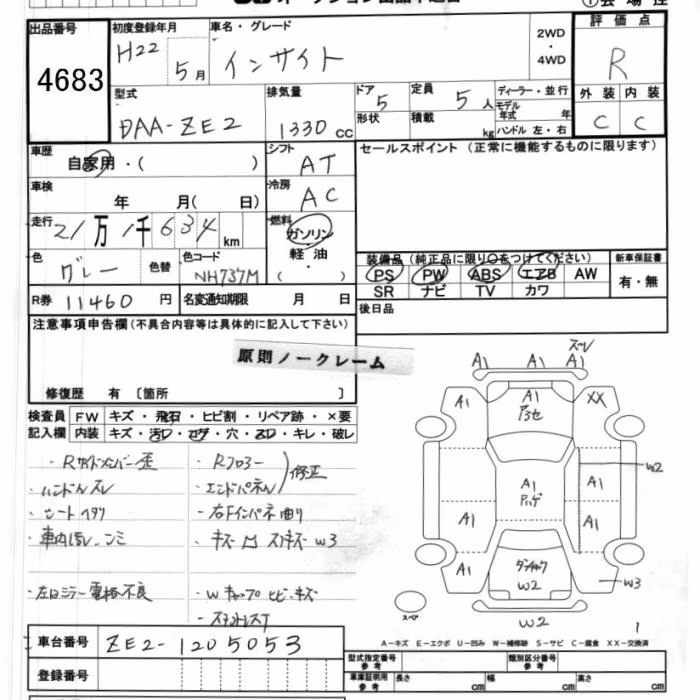 出品番号 4683
初度登録年月 H22 5月
車名・グレード インサイト
2WD・4WD
評価点 R
型式 DAA-ZE2
排気量 1330 CC
ドア 5
形状
定員 5人
積載 kg
ディーラー・並行
モデル年式 年
ハンドル 左・右
外装 C
内装 C
車歴 自家用・( )
シフト AT
セールスポイント (正常に機能するものに限ります)
車検 年 月( 日)
冷房 AC
走行 21万1千634 km
燃料 ガソリン・軽油・( )
色 グレー 色替
色コード NH737M
装備品 (純正品に限り○をつけてください)
新車保証書
PS PW ABS エアB AW
SR ナビ TV カワ
有・無
R券 11460 円
名変通知期限 月 日
後日品
注意事項申告欄(不具合内容等は具体的に記入して下さい)
原則ノークレーム
修復歴 有 〔箇所 〕
検査員記入欄
FW キズ・飛石・ヒビ割・リペア跡・×要
内装 キズ・汚レ・コゲ・穴・スレ・キレ・破レ
・Rサイドメンバー歪
・Rフロアー
・エンドパネル
修正
・ハンドルスレ
・シートヘタリ
・右Fインパネ曲り
・左ドミラー電格不良
・Wキャップヒビ・キズ
A1 A1 A1 ズレ
A1 A1 XX
W2
A1 A1
A1 A1
A1 W2 W3
W2
スペア
A-キズ E-エクボ U-凹み W-補修跡 S-サビ C-腐食 XX-交換済
車台番号 ZE2-1205053
登録番号
型式指定番号 参考
類別区分番号 参考
車庫証明用 参考 長さ cm 幅 cm 高さ cm